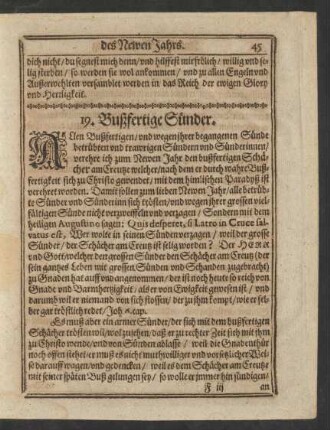 des Newen Jahrs. 45
dich nicht/ du segnest mich denn/ und hilffest mir frölich/ willig und se-
lig sterben/ so werden sie wol ankommen/ und zu allen Engeln und
Außerwehlten versamblet werden in das Reich der ewigen Glory
und Herrligkeit.
19. Bußfertige Sünder.
Allen Bußfertigen/ und wegen ihrer begangenen Sünde
betrübten und trawrigen Sündern und Sünderinnen/
verehre ich zum Newen Jahr den bußfertigen Schä-
cher am Creutz welcher/ nach dem er durch wahre Buß-
fertigkeit sich zu Christo gewendet/ mit dem himlischen Paradeiß ist
verehret worden. Damit sollen zum lieben Newen Jahr/ alle betrüb-
te Sünder und Sünderinn sich trösten/ und wegen ihrer grossen viel-
fältigen Sünde nicht verzweiffeln und verzagen/ Sondern mit dem
heiligen Augustino sagen: Quis desperet, si Latro in Cruce sal-
vatus est, Wer wolte in seinen Sünden verzagen/ weil der grosse
Sünder/ der Schächer am Creutz ist selig worden? Der HERR
und Gott/ welcher den grossen Sünder den Schächer am Creutz (der
sein gantzes Leben mit grossen Sünden und Schanden zugebracht)
zu Gnaden hat auff und angenommen/ der ist noch heute so reich von
Gnade und Barmhertzigkeit/ als er von Ewigkeit gewesen ist/ und
darumb wil er niemand von sich stossen/ der zu ihm kompt/ wie er sel-
ber gar tröstlich redet/ Joh. 6. cap.
Es muß aber ein armer Sünder/ der sich mit dem bußfertigen
Schächer trösten wil/ wol zusehen/ daß er zu rechter Zeit sich mit ihm
zu Christo wende/ und von Sünden ablasse/ weil die Gnadenthür
noch offen stehet: er muß es nicht muthwilliger und vorsetzlicher Wei-
se darauff wagen/ und gedencken/ weil es dem Schächer am Creutz
mit seiner späten Buß gelungen sey/ so wolle er immer hin sündigen/
F iij an